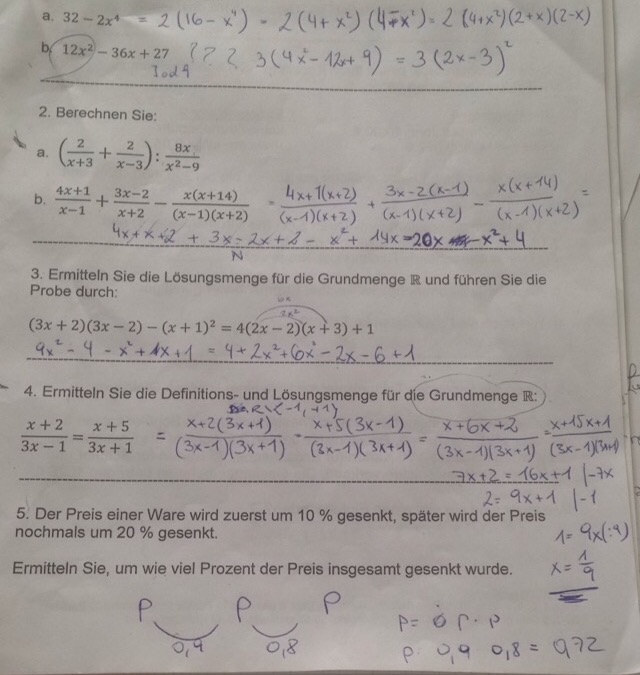 a. 32 – 2x⁴ = 2(16 - x⁴) = 2(4 + x²)(4 - x²) = 2(4+x²)(2+x)(2-x)
b. 12x² – 36x + 27 ? ? ? 3(4x² - 12x + 9) = 3(2x - 3)²
2. Berechnen Sie:
a. (2/(x+3) + 2/(x−3)) : 8x/(x²−9)
b. (4x+1)/(x−1) + (3x−2)/(x+2) − x(x+14)/((x−1)(x+2)) = 4x+1(x+2)/((x-1)(x+2)) + 3x-2(x-1)/((x-1)(x+2)) - x(x+14)/((x-1)(x+2)) =
4x+x+2 + 3x-2x+2 - x²+ 14x = 20x - x² + 4
N
3. Ermitteln Sie die Lösungsmenge für die Grundmenge ℝ und führen Sie die
Probe durch:
2x²
(3x + 2)(3x − 2) − (x + 1)² = 4(2x − 2)(x + 3) + 1
9x² - 4 - x² + 1x + 1 = 4 + 2x² + 6x - 2x - 6 + 1
4. Ermitteln Sie die Definitions- und Lösungsmenge für die Grundmenge ℝ:
(x + 2)/(3x − 1) = (x + 5)/(3x + 1) = x+2(3x+1)/((3x-1)(3x+1)) - x+5(3x-1)/((3x-1)(3x+1)) = x+6x+2/((3x-1)(3x+1)) = x+15x+1/((3x-1)(3x+1))
7x+2 = 16x+1 |-7x
2 = 9x+1 |-1
5. Der Preis einer Ware wird zuerst um 10 % gesenkt, später wird der Preis
nochmals um 20 % gesenkt.
1 = 9x (:9)
Ermitteln Sie, um wie viel Prozent der Preis insgesamt gesenkt wurde.
x = 1/9
P P P
0,9 0,8
p· 0,9 0,8 = 0,72